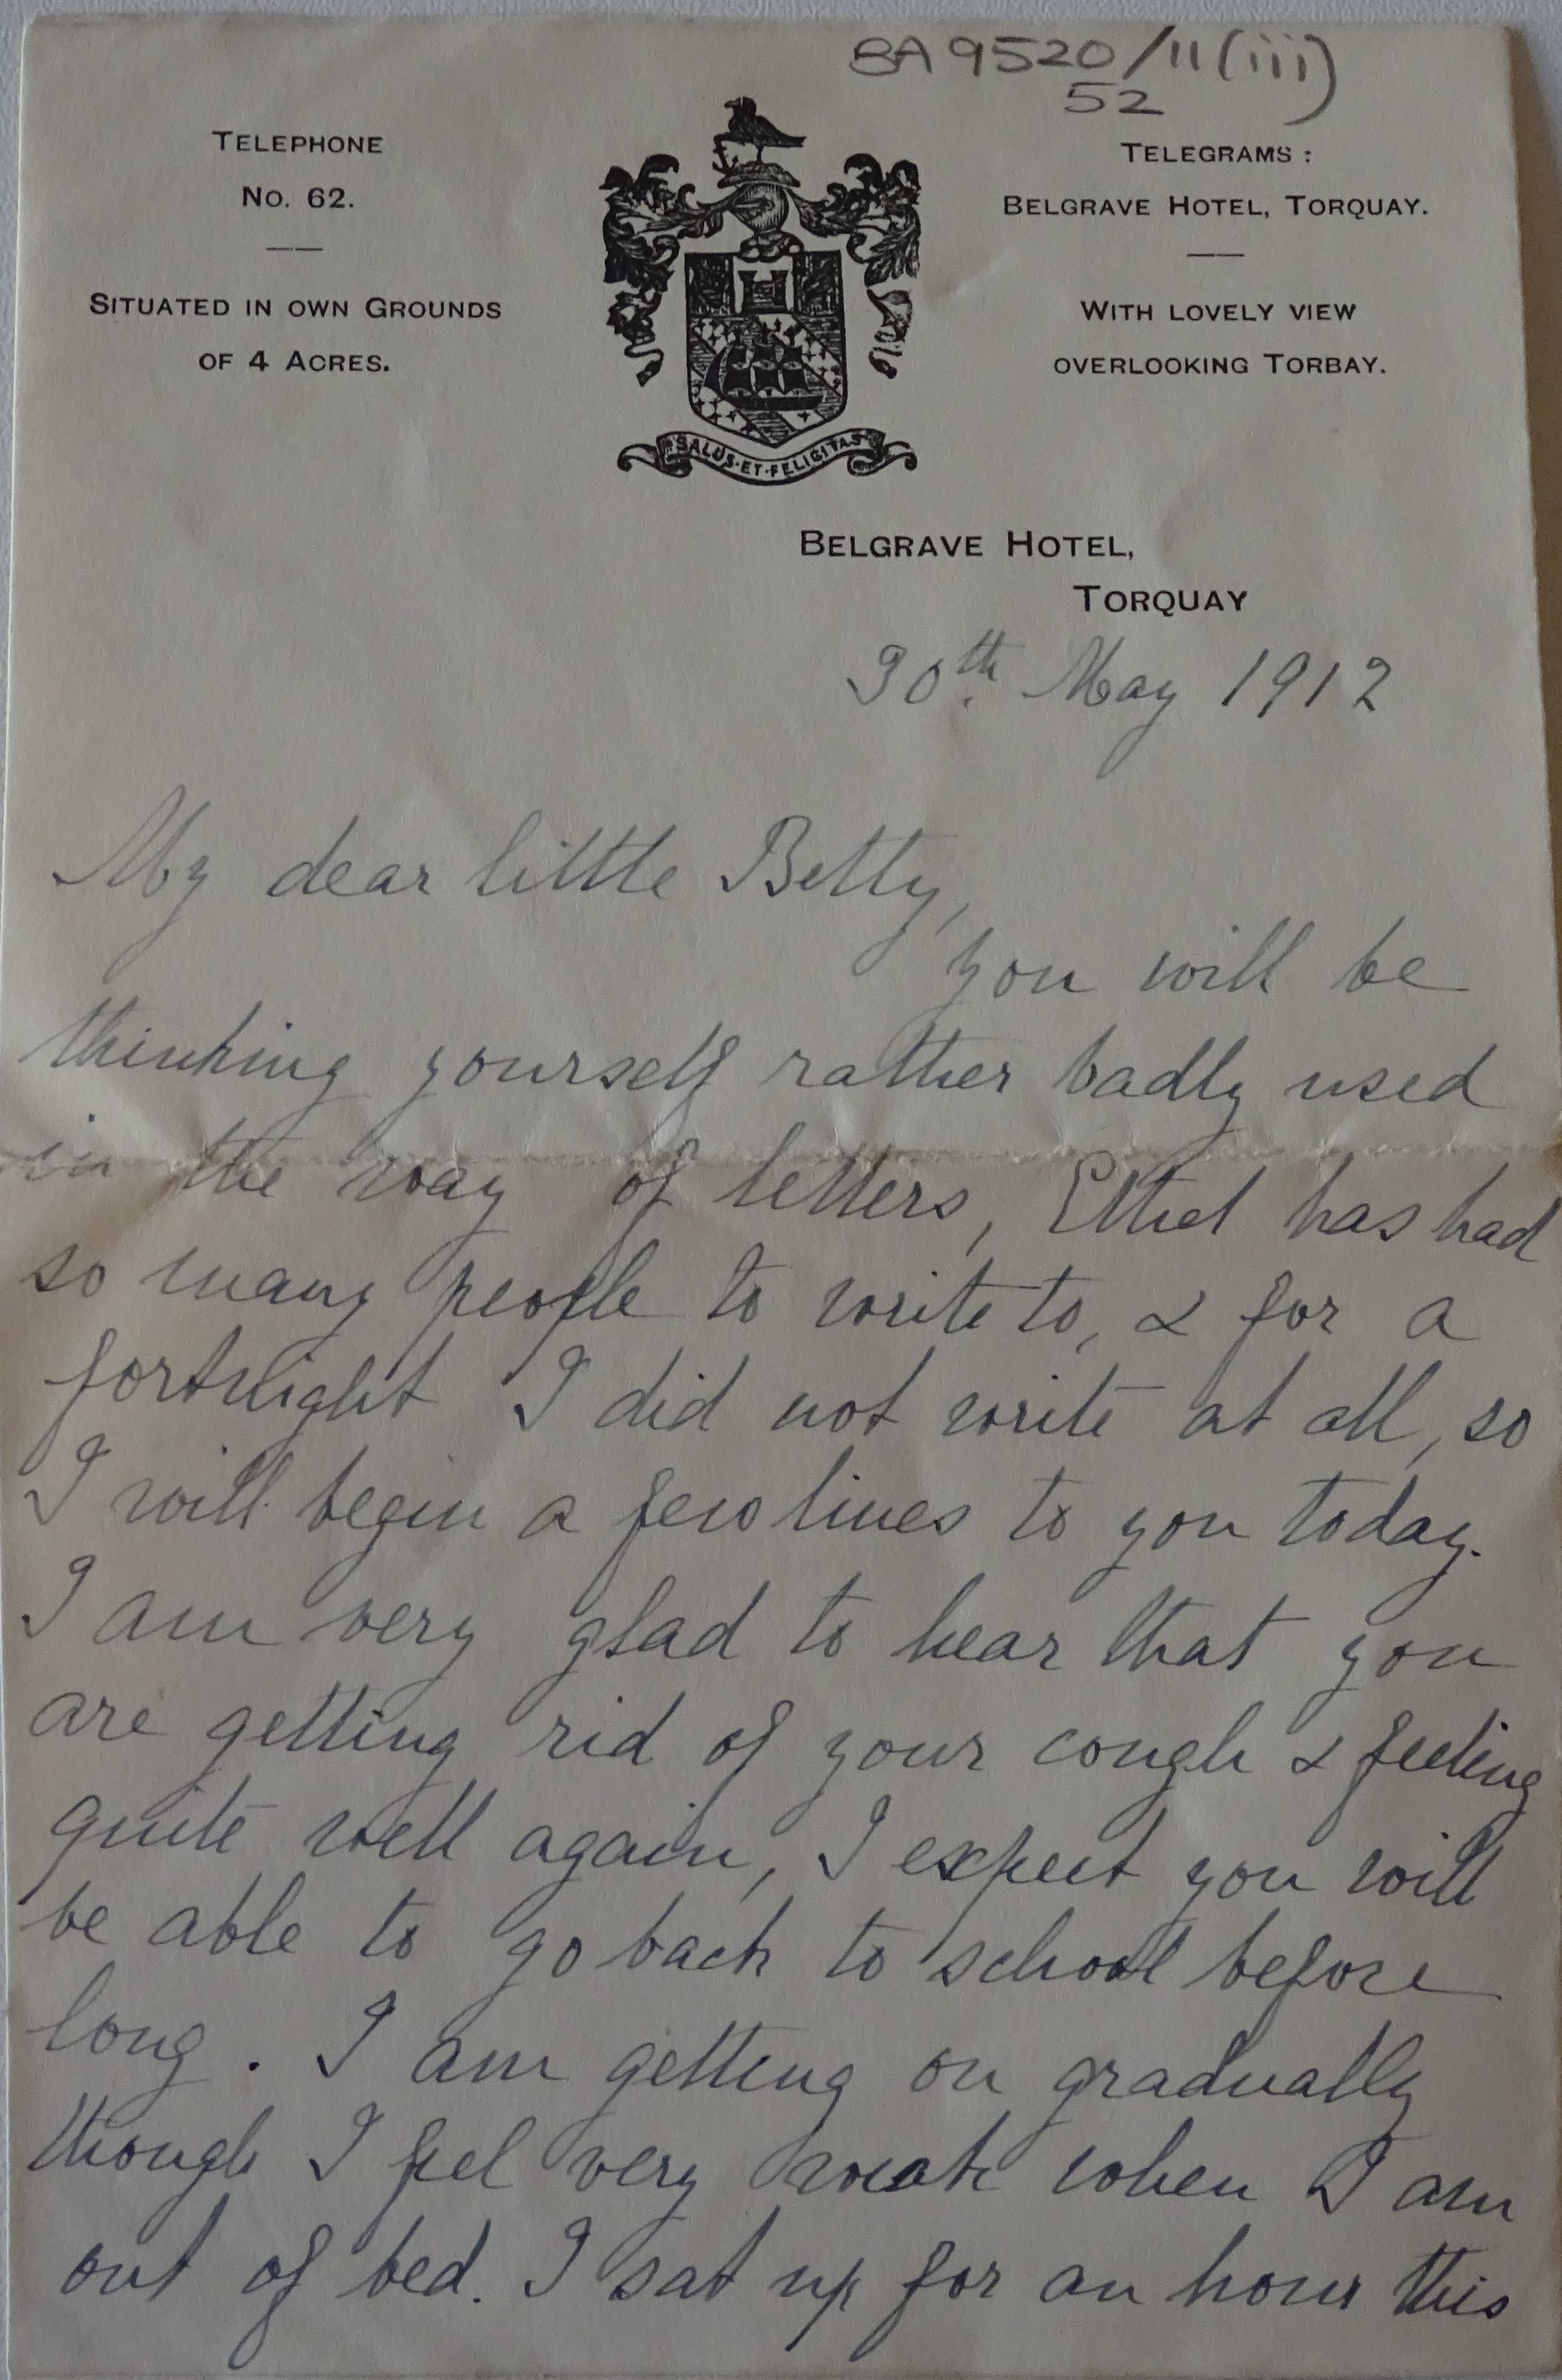 BA 9520/11(iii)
52
TELEPHONE
No. 62.
SITUATED IN OWN GROUNDS
OF 4 ACRES.
TELEGRAMS :
BELGRAVE HOTEL, TORQUAY.
WITH LOVELY VIEW
OVERLOOKING TORBAY.
SALUS·ET·FELICITAS
BELGRAVE HOTEL,
TORQUAY
30th. May 1912
My dear little Betty,
you will be
thinking yourself rather badly used
in the way of letters, Ethel has had
so many people to write to, & for a
fortnight I did not write at all, so
I will begin a few lines to you today.
I am very glad to hear that you
are getting rid of your cough & feeling
quite well again, I expect you will
be able to go back to school before
long. I am getting on gradually
though I feel very weak when I am
out of bed. I sat up for an hour this